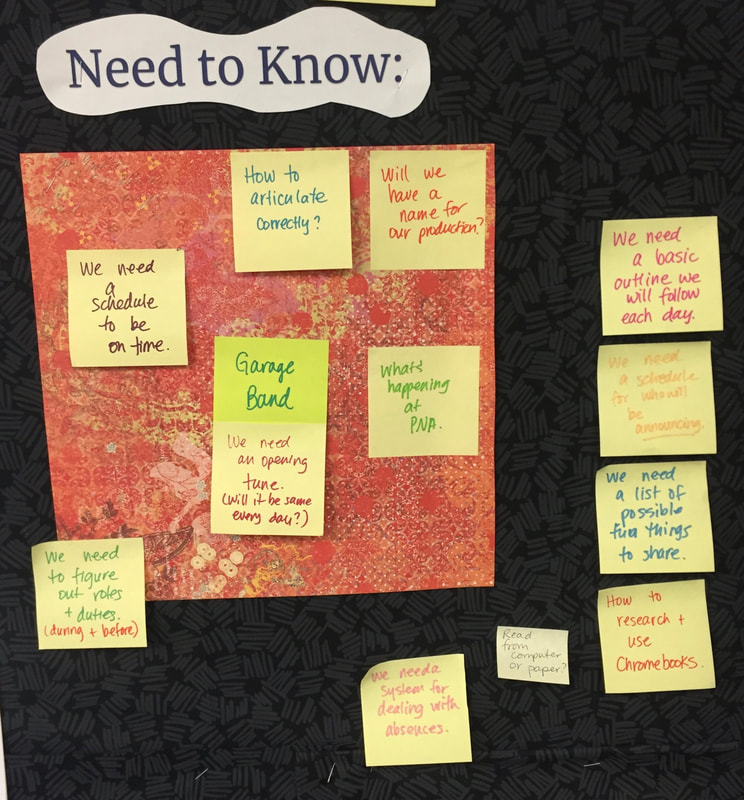 Need to Know:
How to
articulate
correctly?
Will we
have a
name for
our production?
We need
a
schedule
to be
on time.
Garage
Band
We need
an opening
tune.
(Will it be same
every day?)
What's
happening
at
PNA.
We need
a basic
outline we
will follow
each day.
We need
a schedule
for who will
be
announcing.
We need
a list of
possible
fun things
to share.
How to
research +
use
Chromebooks.
We need
to figure
out roles
+ duties.
(during + before)
Read
from
computer
or paper?
We need a
system for
dealing with
absences.